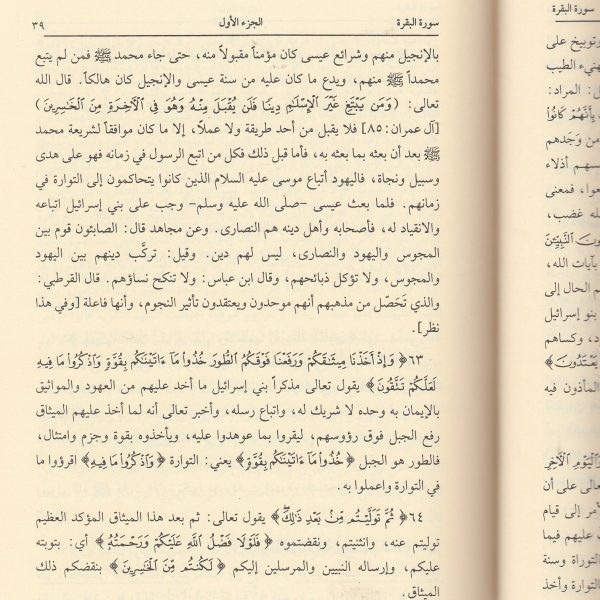 سورة البقرة
الجزء الأول
٣٩
بالإنجيل منهم وشرائع عيسى كان مؤمناً مقبولاً منه، حتى جاء محمد ﷺ فمن لم يتبع
محمداً ﷺ منهم، ويدع ما كان عليه من سنة عيسى والإنجيل كان هالكاً. قال الله
تعالى: ﴿وَمَن يَبْتَغِ غَيْرَ الْإِسْلَٰمِ دِينًا فَلَن يُقْبَلَ مِنْهُ وَهُوَ فِي الْآخِرَةِ مِنَ الْخَٰسِرِينَ﴾
[آل عمران: ٨٥] فلا يقبل من أحد طريقة ولا عملاً، إلا ما كان موافقاً لشريعة محمد
ﷺ بعد أن بعثه بما بعثه به، فأما قبل ذلك فكل من اتبع الرسول في زمانه فهو على هدى
وسبيل ونجاة، فاليهود أتباع موسى عليه السلام الذين كانوا يتحاكمون إلى التوراة في
زمانهم. فلما بعث عيسى -صلى الله عليه وسلم- وجب على بني إسرائيل اتباعه
والانقياد له، فأصحابه وأهل دينه هم النصارى. وعن مجاهد قال: الصابئون قوم بين
المجوس واليهود والنصارى، ليس لهم دين. وقيل: تركَّب دينهم بين اليهود
والمجوس، ولا تؤكل ذبائحهم، وقال ابن عباس: ولا تنكح نساؤهم. قال القرطبي:
والذي تَحَصّل من مذهبهم أنهم موحدون ويعتقدون تأثير النجوم، وأنها فاعلة [وفي هذا
نظر].
٦٣﴿وَإِذْ أَخَذْنَا مِيثَٰقَكُمْ وَرَفَعْنَا فَوْقَكُمُ الطُّورَ خُذُوا مَا ءَاتَيْنَٰكُم بِقُوَّةٍ وَاذْكُرُوا مَا فِيهِ
لَعَلَّكُمْ تَتَّقُونَ﴾ يقول تعالى مذكراً بني إسرائيل ما أخذ عليهم من العهود والمواثيق
بالإيمان به وحده لا شريك له، واتباع رسله، وأخبر تعالى أنه لما أخذ عليهم الميثاق
رفع الجبل فوق رؤوسهم، ليقروا بما عوهدوا عليه، ويأخذوه بقوة وحزم وامتثال،
فالطور هو الجبل ﴿خُذُوا مَا ءَاتَيْنَٰكُم بِقُوَّةٍ﴾ يعني: التوراة ﴿وَاذْكُرُوا مَا فِيهِ﴾ اقرؤوا ما
في التوراة واعملوا به.
٦٤﴿ثُمَّ تَوَلَّيْتُم مِّنْ بَعْدِ ذَٰلِكَ﴾ يقول تعالى: ثم بعد هذا الميثاق المؤكد العظيم
توليتم عنه، وانثنيتم، ونقضتموه ﴿فَلَوْلَا فَضْلُ اللَّهِ عَلَيْكُمْ وَرَحْمَتُهُ﴾ أي: بتوبته
عليكم، وإرساله النبيين والمرسلين إليكم ﴿لَكُنتُم مِّنَ الْخَٰسِرِينَ﴾ بنقضكم ذلك
الميثاق.
سورة البقرة
وتوبيخ على
هنيء الطيب
المراد:
بِأَنَّهُمْ كَانُوا
من وَجَدهم
أذلاء
فمعنى
غضب،
النَّبِيِّينَ
بآيات الله،
الحال إلى
بنو إسرائيل
وكساهم
يَعْتَدُونَ﴾
المأذون فيه
وَالْيَوْمِ الْآخِرِ
تعالى على أن
الأمر إلى قيام
عليهم فيما
التوراة وسنة
التوراة وأخذ